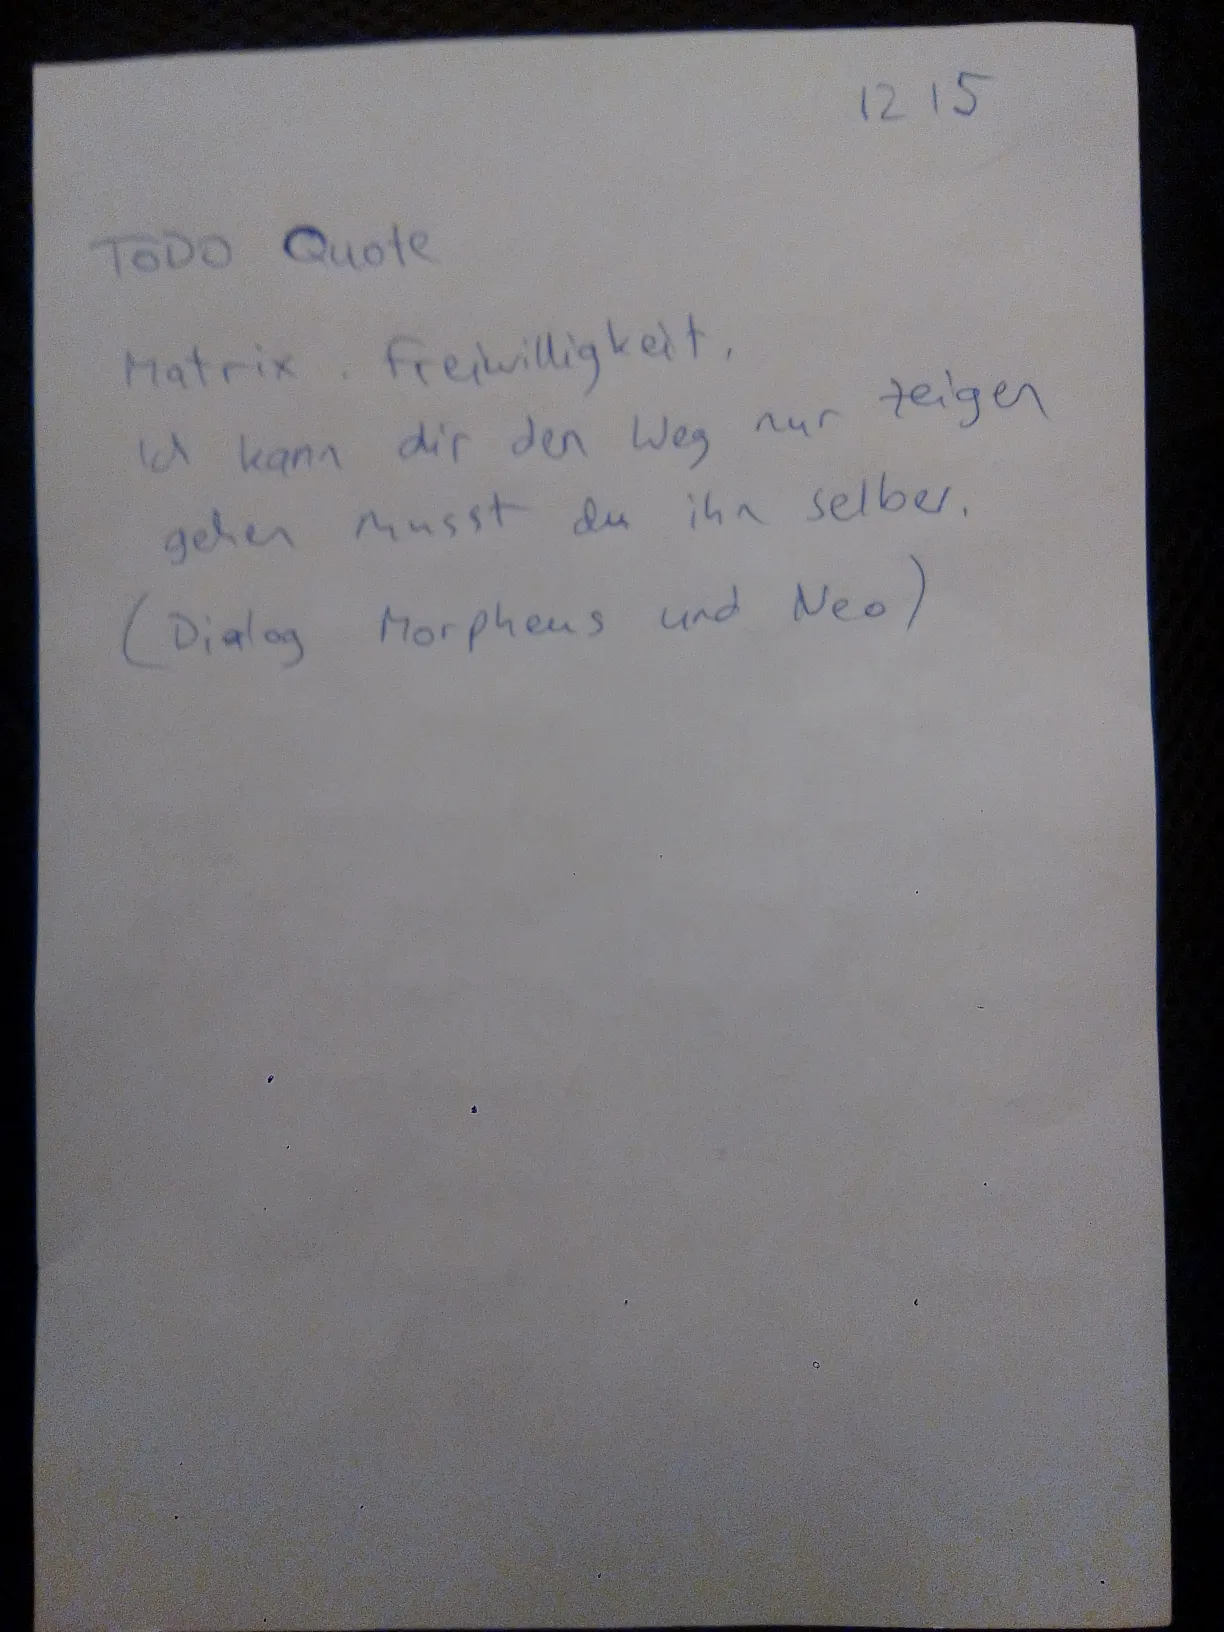 12 15
TODO Quote
Matrix. Freiwilligkeit,
Ich kann dir den Weg nur zeigen
gehen musst du ihn selber.
(Dialog Morpheus und Neo)